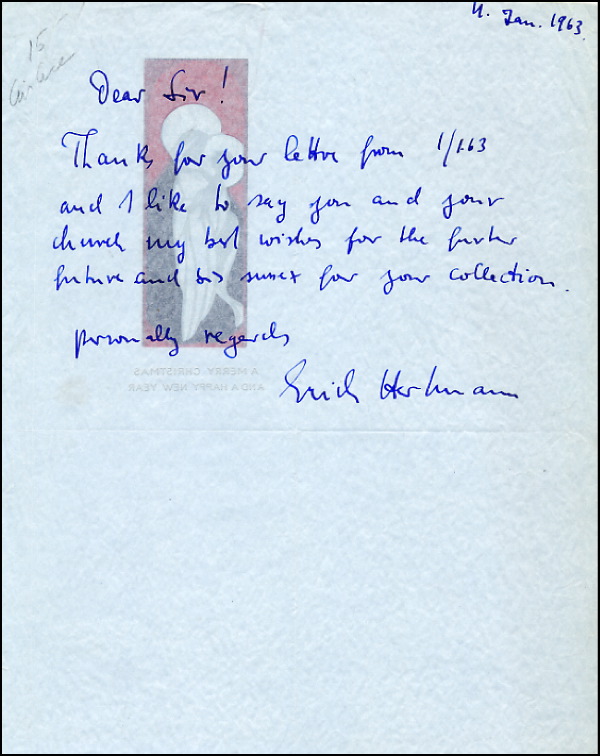 15
4. Jan. 1963.
Dear Sir!
Thanks for your lettre from 1/1.63
and I like to say you and your
church my best wishes for the furter
future and for your collection.
personally regards
Erich Hartmann
A MERRY CHRISTMAS
AND A HAPPY NEW YEAR